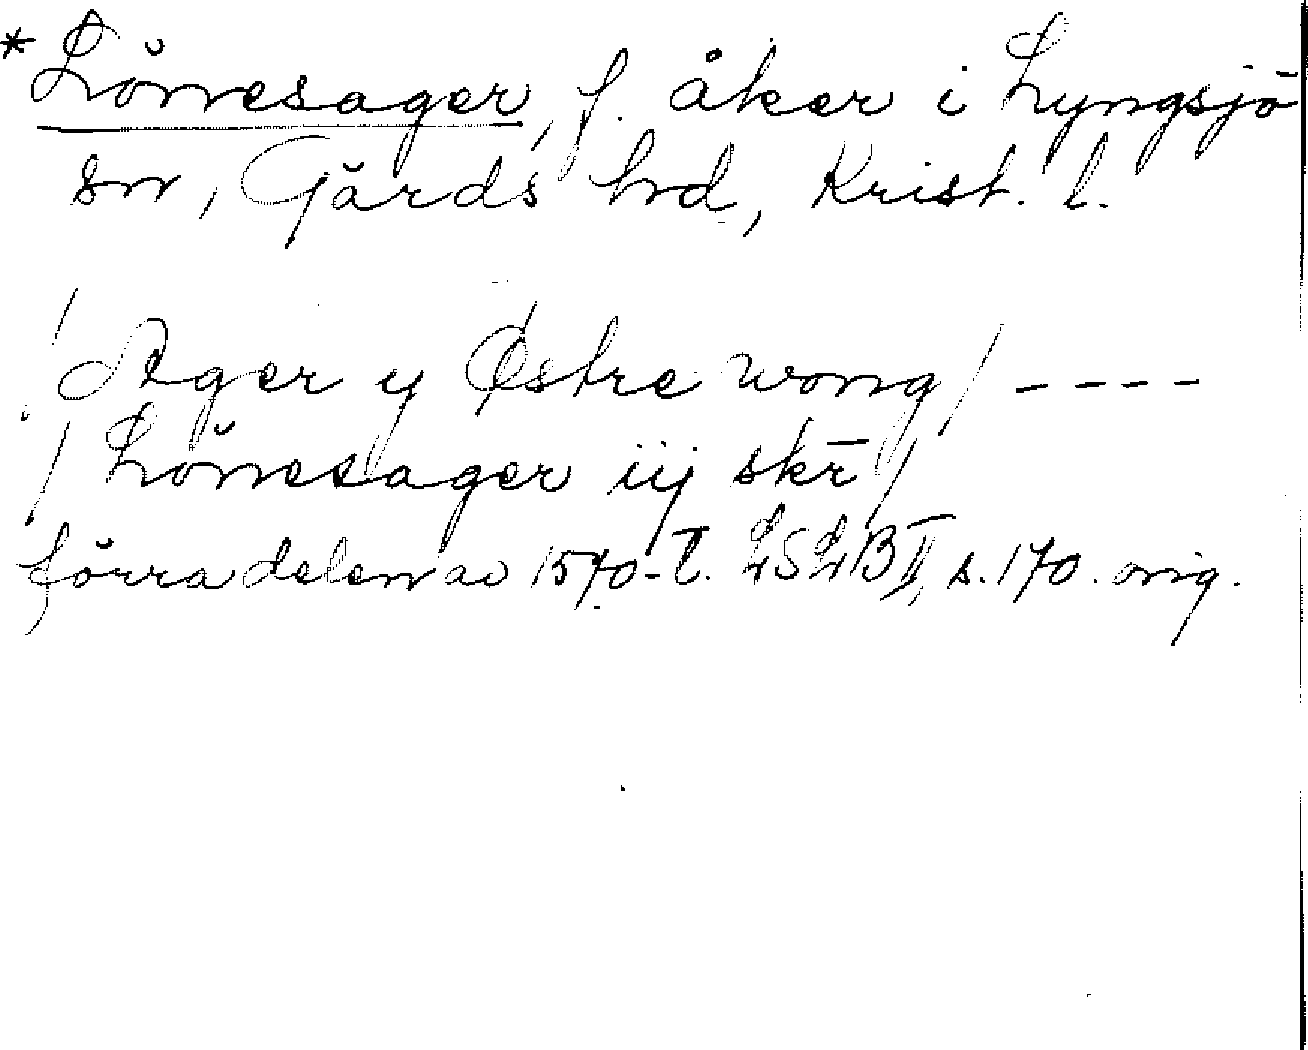 *Lönesager, f. åker i Lyngsjö
sn, Gärds hd, Krist. l.
/Ager y Østre wong/ ----
/Lönesager iij skr̄/
förra delen av 1570-t. LSLB II, s. 170. orig.